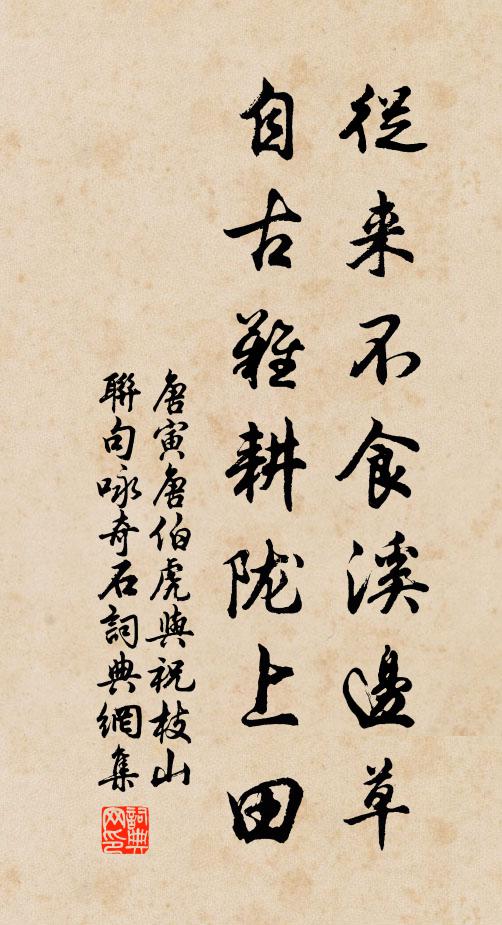 従来不食溪邊草
自古難耕陇上田
唐寅唐伯虎與祝枝山
聯句咏奇石詞典網集
詞典网印